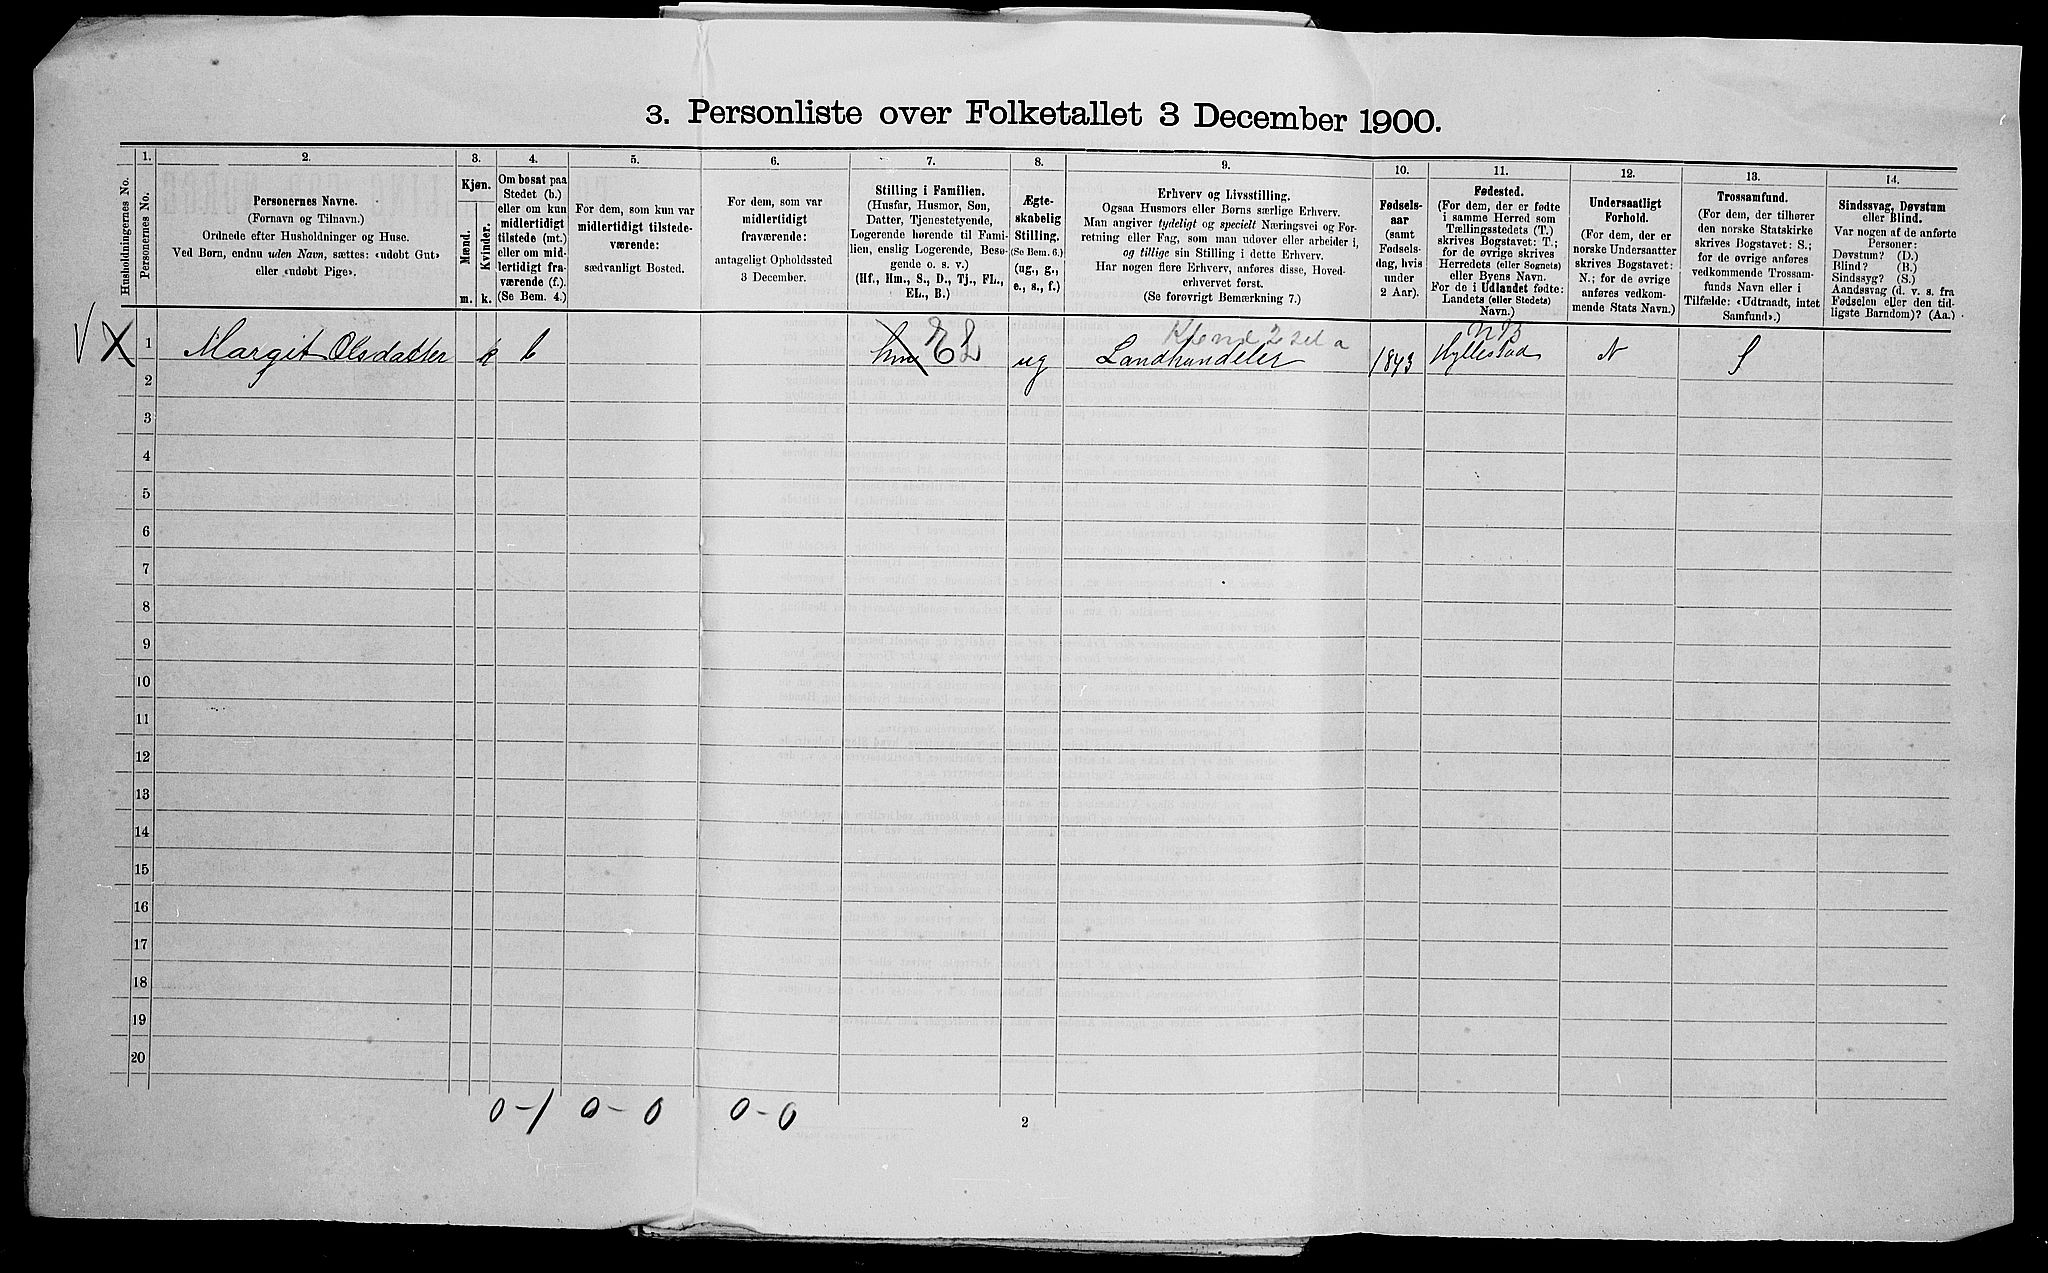 3. Personliste over Folketallet 3 December 1900.
1. 2. 3. 4. 5. 6. 7. 8. 9. 10. 11. 12. 13. 14.
Husholdningernes No.
Personernes No.
Personernes Navne.
(Fornavn og Tilnavn.)
Ordnede efter Husholdninger og Huse.
Ved Børn, endnu uden Navn, sættes: «udøbt Gut»
eller «udøbt Pige».
Kjøn.
Mænd.
Kvinder.
m. k.
Om bosat paa
Stedet (b.)
eller om kun
midlertidigt
tilstede (mt.)
eller om mid-
lertidigt fra-
værende (f.).
(Se Bem. 4.)
For dem, som kun var
midlertidigt tilstede-
værende:
sædvanligt Bosted.
For dem, som var
midlertidigt
fraværende:
antageligt Opholdssted
3 December.
Stilling i Familien.
(Husfar, Husmor, Søn,
Datter, Tjenestetyende,
Logerende hørende til Fami-
lien, enslig Logerende, Besø-
gende o. s. v.)
(Hf., Hm., S., D., Tj., FL.,
EL., B.)
Ægte-
skabelig
Stilling.
(Se Bem. 6.)
(ug., g.,
e., s., f.)
Erhverv og Livsstilling.
Ogsaa Husmors eller Børns særlige Erhverv.
Man angiver tydeligt og specielt Næringsvei og For-
retning eller Fag, som man udøver eller arbeider i,
og tillige sin Stilling i dette Erhverv.
Har nogen flere Erhverv, anføres disse, Hoved-
erhvervet først.
(Se forøvrigt Bemærkning 7.)
Fødsels-
aar
(samt
Fødsels-
dag, hvis
under
2 Aar).
Fødested.
(For dem, der er fødte
i samme Herred som
Tællingsstedets (T.)
skrives Bogstavet: T.;
for de øvrige skrives
Herredets (eller Sognets)
eller Byens Navn.
For de i Udlandet fødte:
Landets (eller Stedets)
Navn.)
Undersaatligt
Forhold.
(For dem, der er
norske Undersaatter
skrives Bogstavet:
N.; for de øvrige
anføres vedkom-
mende Stats Navn.)
Trossamfund.
(For dem, der tilhører
den norske Statskirke
skrives Bogstavet: S.;
for de øvrige anføres
vedkommende Trossam-
funds Navn eller i
Tilfælde: «Udtraadt, intet
Samfund».)
Sindssvag, Døvstum
eller Blind.
Var nogen af de anførte
Personer:
Døvstum? (D.)
Blind? (B.)
Sindssyg? (S.)
Aandssvag (d. v. s. fra
Fødselen eller den tid-
ligste Barndom)? (Aa.)
1 Margit Olsdatter k b hm EL ug Landhandeler 1843 Hyllestad N S
2
3
4
5
6
7
8
9
10
11
12
13
14
15
16
17
18
19
20
0-1 0-0 0-0
2